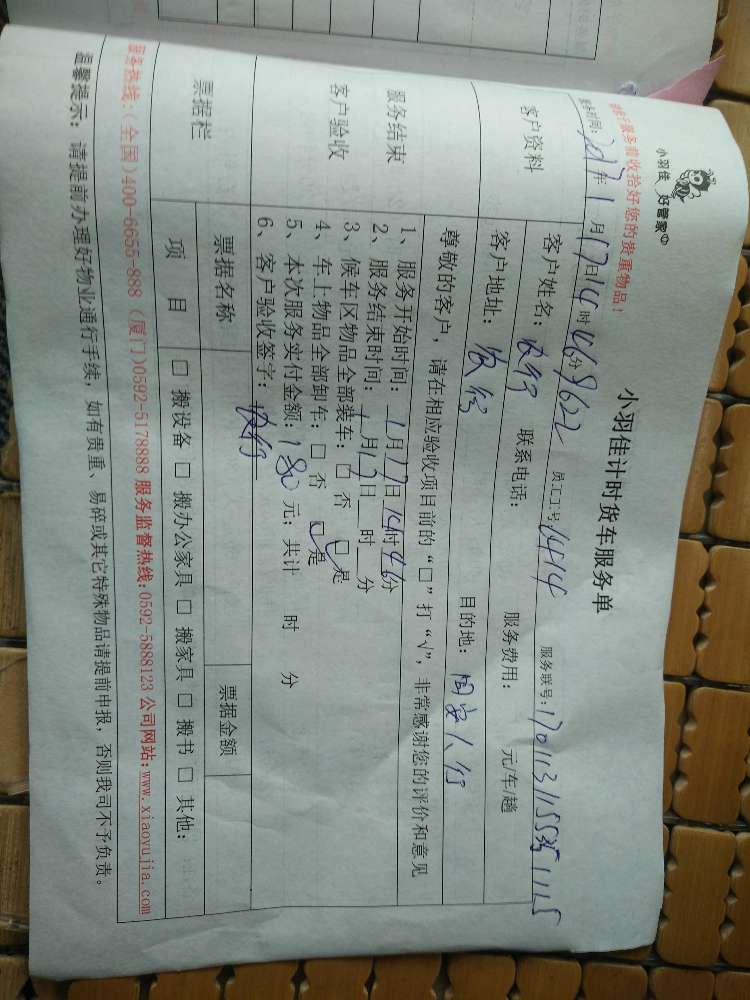 小羽佳 好管家
小羽佳计时货车服务单
请于服务前收拾好您的贵重物品!
服务时间:2017年1月17日14时46分 员工工号 1414 服务联号:
客户资料
客户姓名:农行 联系电话: 服务费用: 元/车/趟
客户地址:农行 目的地:同安人行
服务结束
客户验收
尊敬的客户,请在相应验收项目前的“□”打“√”,非常感谢您的评价和意见
1、服务开始时间:1月17日14时46分
2、服务结束时间:1月17日 时 分
3、候车区物品全部装车:□ 否 □ 是
4、车上物品全部卸车:□ 否 □ 是
5、本次服务实付金额:180元;共计 时 分
6、客户验收签字:农行
票据栏
票据名称 票据金额
项 目 □ 搬设备 □ 搬办公家具 □ 搬家具 □ 搬书 □ 其他:
服务热线:(全国)400-6655-888 (厦门)0592-5178888 服务监督热线:0592-5888123 公司网站:www.xiaoyujia.com
温馨提示:请提前办理好物业通行手续,如有贵重、易碎或其它特殊物品请提前申报,否则我司不予负责。